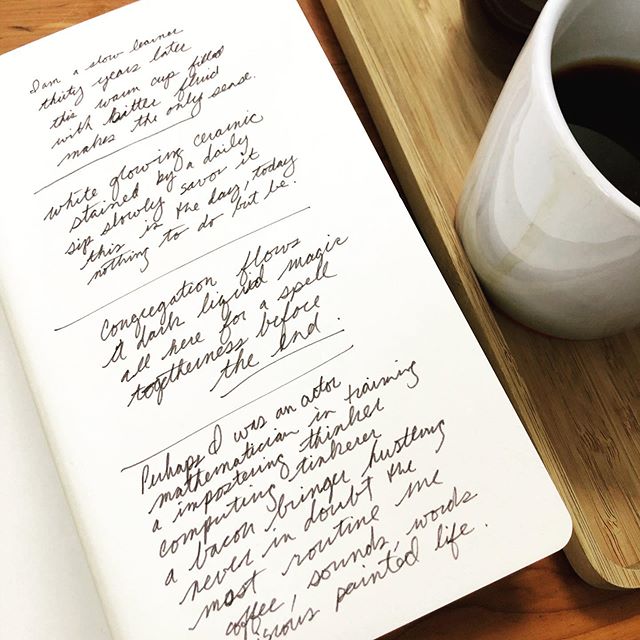 I am a slow learner
thirty years later
this warm cup filled
with bitter fluid
makes the only sense.
White glowing ceramic
stained by a daily
sip slowly savor it
this is the day, today
nothing to do but be.
Congregation flows
it dark liquid magic
all here for a spell
togetherness before
the end.
Perhaps I was an actor
mathematician in training
a impostering thinker
computing tinkerer
a bacon bringer hustling
never in doubt the
most routine me
coffee, sounds, words
painted life.